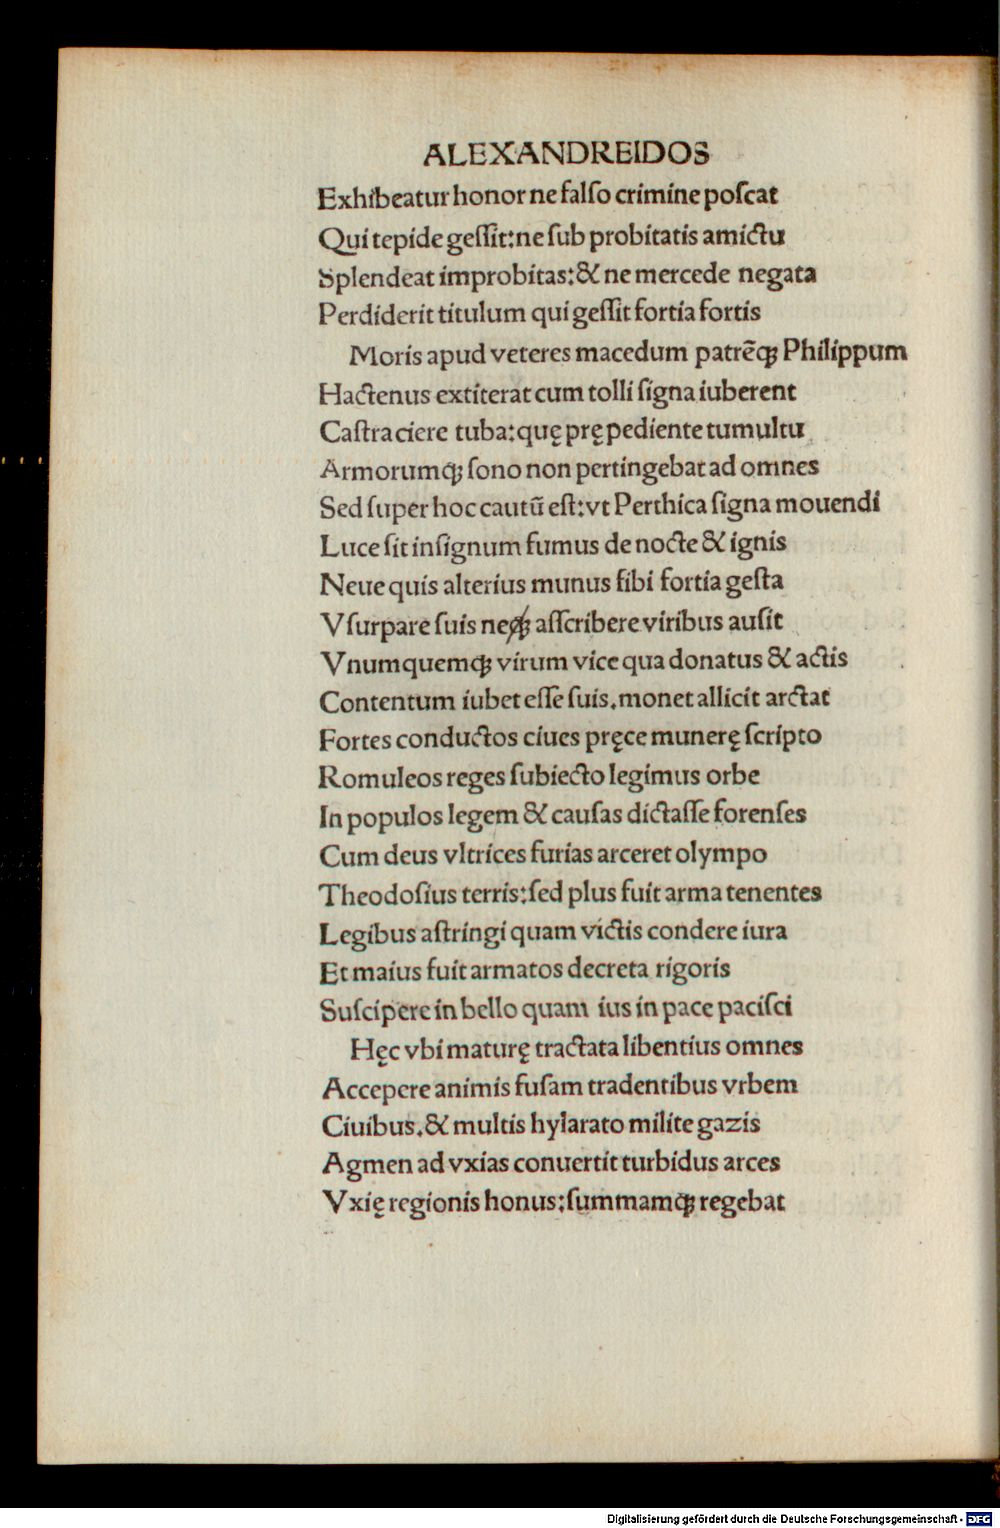 ALEXANDREIDOS
Exhibeatur honor ne falſo crimine poſcat
Qui tepide geſſit: ne ſub probitatis amictu
Splendeat improbitas: & ne mercede negata
Perdiderit titulum qui geſſit fortia fortis
Moris apud veteres macedum patrēqꝫ Philippum
Hactenus extiterat cum tolli ſigna iuberent
Caſtra ciere tuba: quę prępediente tumultu
Armorumqꝫ ſono non pertingebat ad omnes
Sed ſuper hoc cautū eſt: vt Perthica ſigna mouendi
Luce ſit inſignum fumus de nocte & ignis
Neue quis alterius munus ſibi fortia geſta
Vſurpare ſuis neqꝫ aſſcribere viribus auſit
Vnumquemqꝫ virum vice qua donatus & actis
Contentum iubet eſſe ſuis. monet allicit arctat
Fortes conductos ciues pręce munerę ſcripto
Romuleos reges ſubiecto legimus orbe
In populos legem & cauſas dictaſſe forenſes
Cum deus vltrices furias arceret olympo
Theodoſius terris: ſed plus fuit arma tenentes
Legibus aſtringi quam victis condere iura
Et maius fuit armatos decreta rigoris
Suſcipere in bello quam ius in pace paciſci
Hęc vbi maturę tractata libentius omnes
Accepere animis fuſam tradentibus vrbem
Ciuibus. & multis hylarato milite gazis
Agmen ad vxias conuertit turbidus arces
Vxię regionis honus: ſummamqꝫ regebat
Digitalisierung gefördert durch die Deutsche Forschungsgemeinschaft - DFG